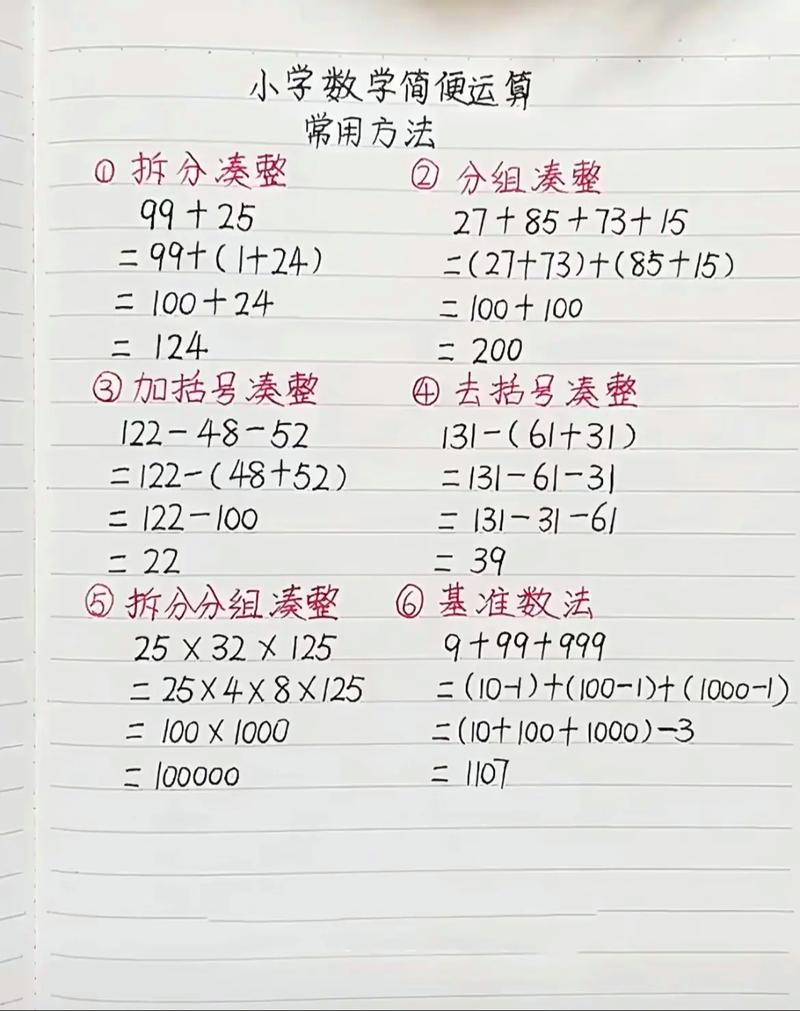 小学数学简便运算
常用方法
① 拆分凑整
99+25
=99+(1+24)
=100+24
=124
② 分组凑整
27+85+73+15
=(27+73)+(85+15)
=100+100
=200
③ 加括号凑整
122-48-52
=122-(48+52)
=122-100
=22
④ 去括号凑整
131-(61+31)
=131-61-31
=131-31-61
=39
⑤ 拆分分组凑整
25×32×125
=25×4×8×125
=100×1000
=100000
⑥ 基准数法
9+99+999
=(10-1)+(100-1)+(1000-1)
=(10+100+1000)-3
=1107